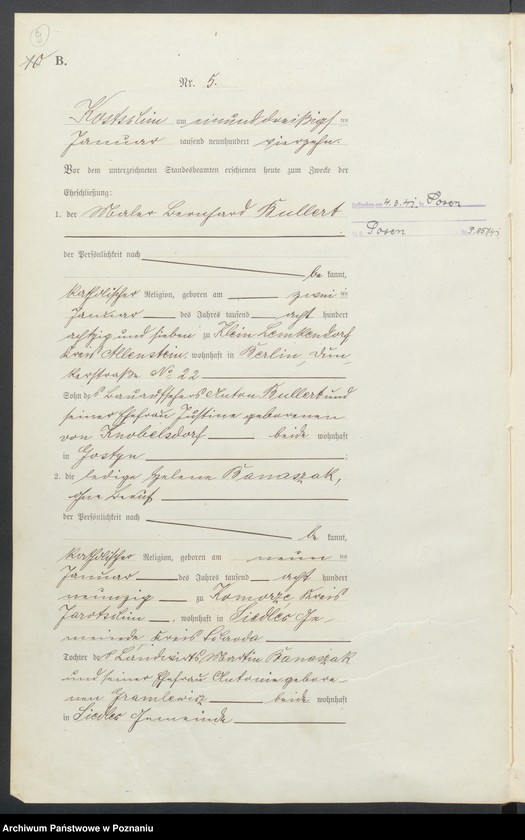 5
10 B.
Nr. 5.
Kostschin am einunddreißigsten
Januar tausend neunhundert vierzehn.
Vor dem unterzeichneten Standesbeamten erschienen heute zum Zwecke der
Eheschließung:
1. der Maler Bernhard Kullert
4. 3. 41. in Posen
Posen
der Persönlichkeit nach
be kannt,
katholischer Religion, geboren am zweiten
Januar des Jahres tausend acht hundert
achtzig und sieben zu Klein Lemkendorf
Kreis Allenstein, wohnhaft in Berlin, Dun-
kerstraße No 22
Sohn des Bauaufsehers Anton Kullert und
seiner Ehefrau Justine geborenen
von Knobelsdorf beide wohnhaft
in Gostyn
2. die ledige Helene Banaszak,
ohne Beruf
der Persönlichkeit nach
be kannt,
katholischer Religion, geboren am neunten
Januar des Jahres tausend acht hundert
neunzig zu Komorze Kreis
Jarotschin, wohnhaft in Siedlec Ge-
meinde Kreis Schroda
Tochter des Landwirts Martin Banaszak
und seiner Ehefrau Antonie gebore-
nen beide wohnhaft
in Siedlec Gemeinde
Archiwum Państwowe w Poznaniu